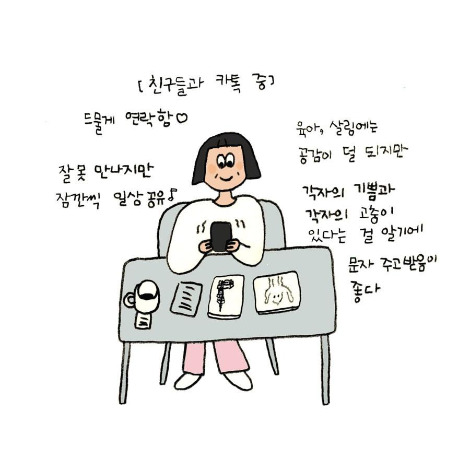 [친구들과 카톡 중]
드물게 연락함♡
잘 못 만나지만
잠깐씩 일상 공유♪
육아, 살림에는
공감이 덜 되지만
각자의 기쁨과
각자의 고충이
있다는 걸 알기에
문자 주고받음이
좋다